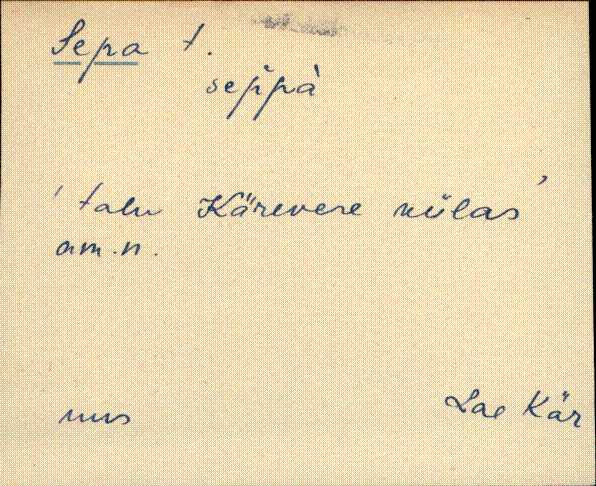 Sepa t.
sep̆pà
' talu Kärevere külas '
am.n.
mus
Lae Kär